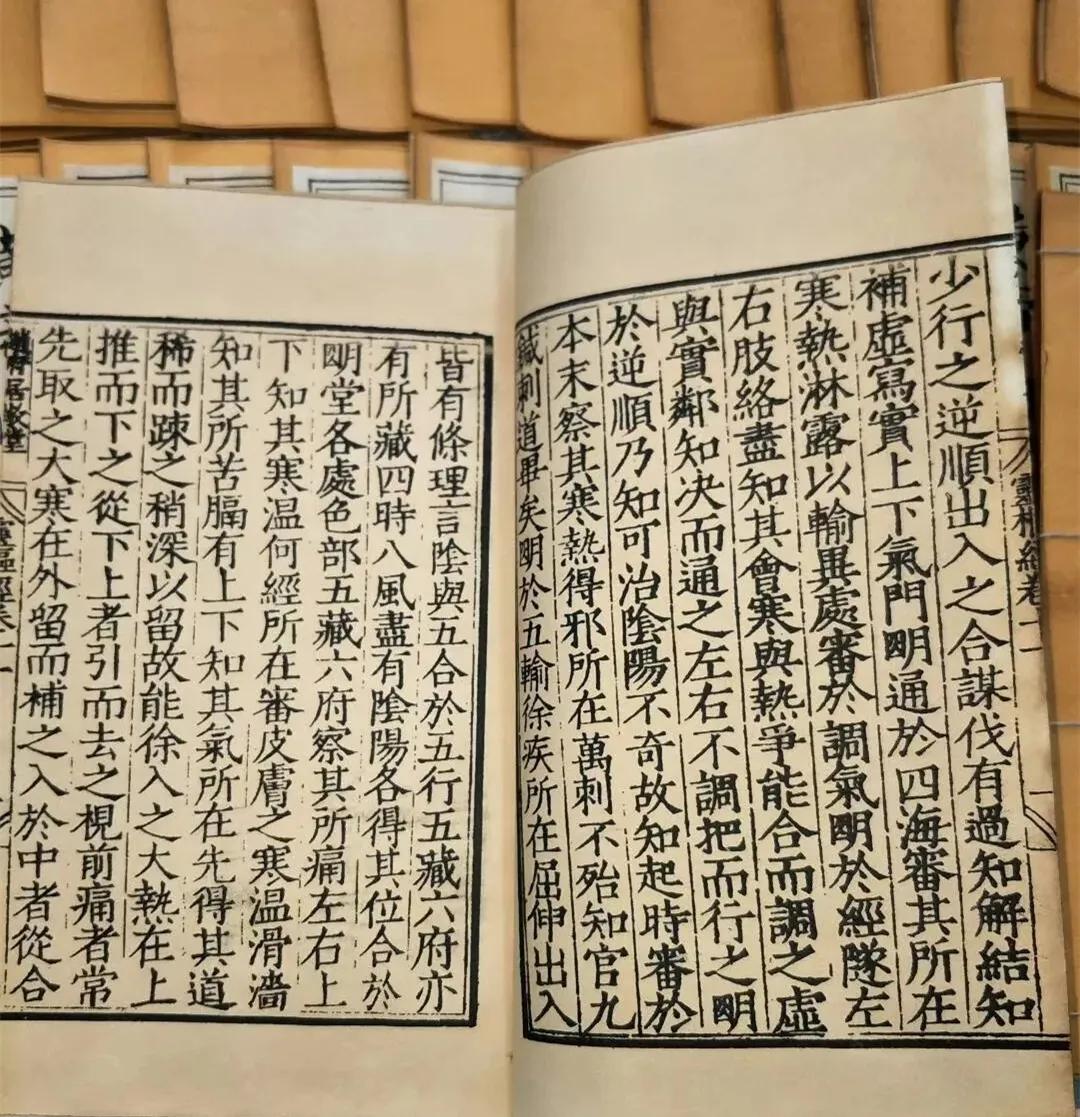 少行之逆順出入之合謀伐有過知解結知
補虛寫實上下氣門明通於四海審其所在
寒熱淋露以輸異處審於調氣明於經隧左
右肢絡盡知其會寒與熱爭能合而調之虛
與實鄰知決而通之左右不調把而行之明
於逆順乃知可治陰陽不奇故知起時審於
本末察其寒熱得邪所在萬刺不殆知官九
鍼刺道畢矣明於五輸徐疾所在屈伸出入
皆有條理言陰與五合於五行五藏六府亦
有所藏四時八風盡有陰陽各得其位合於
明堂各處色部五藏六府察其所痛左右上
下知其寒温何經所在審皮膚之寒温滑濇
知其所苦膈有上下知其氣所在先得其道
稀而踈之稍深以留故能徐入之大熱在上
推而下之從下上者引而去之視前痛者常
先取之大寒在外留而補之入於中者從合